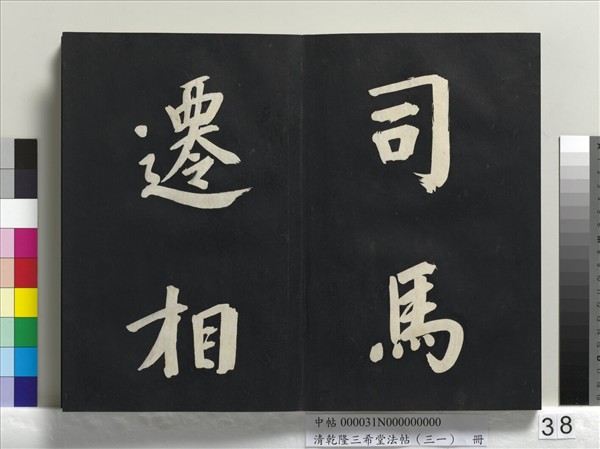 司馬
遷相
中帖 000031N000000000
清乾隆三希堂法帖（三一） 冊
38